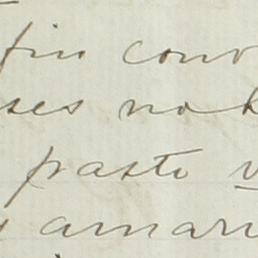 fin conv
ses no h
pasto v
amari